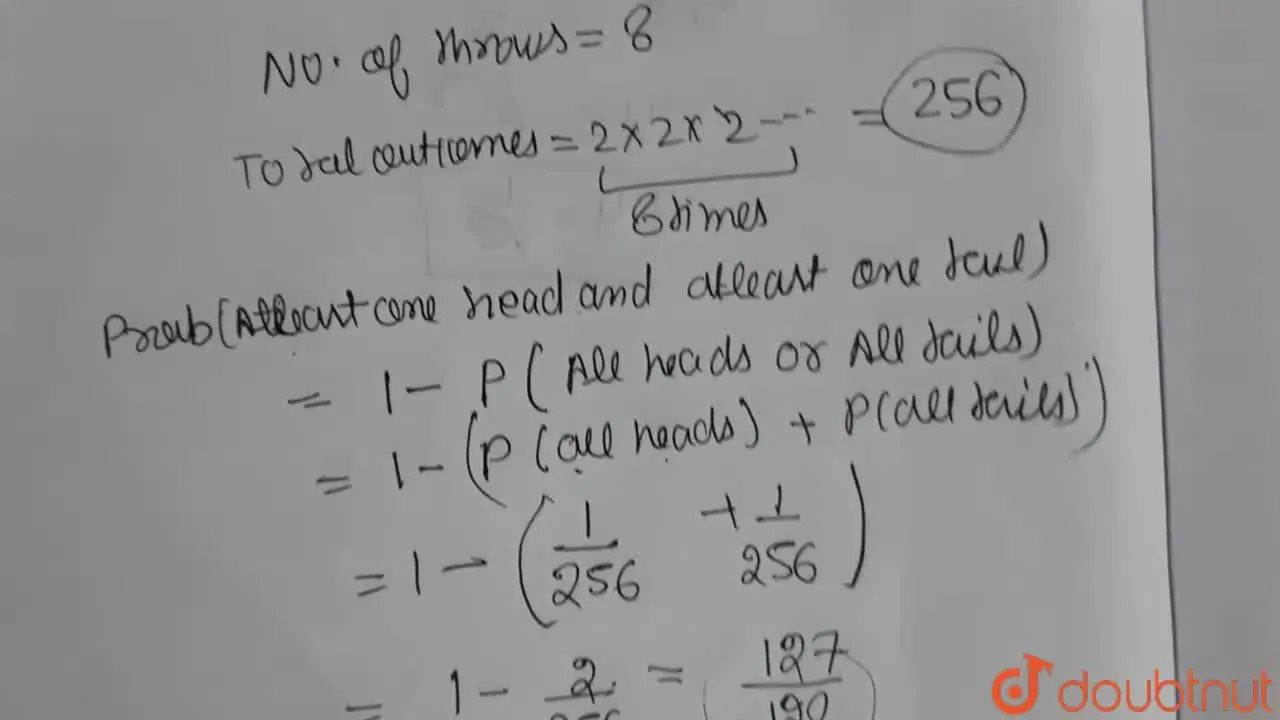 No. of throws = 8
Total outcomes = 2 x 2 x 2 --- = 256
8 times
Prob (Atleast one head and atleast one tail)
= 1 - P (All heads or All tails)
= 1 - (P (all heads) + P(all tails))
= 1 - (1/256 + 1/256)
= 1 - 2/256 = 127/190
doubtnut